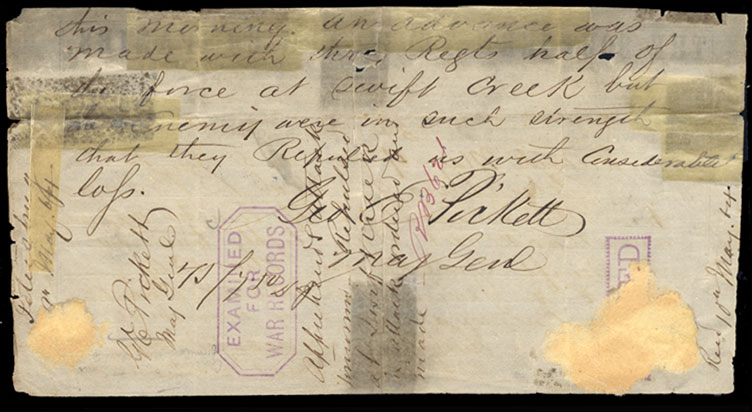 this morning. an advance was
made with three Regts half of
the force at Swift Creek but
the enemy were in such strength
that they Repulsed us with Considerable
loss.
Geo E Pickett
Maj Genl
Petersburg
May 64
Geo E Pickett
Maj Genl
EXAMINED
FOR
WAR RECORDS
Apprehends attack
Repulsed
at Swift Creek
in attack
made
Recd 10th May. 64